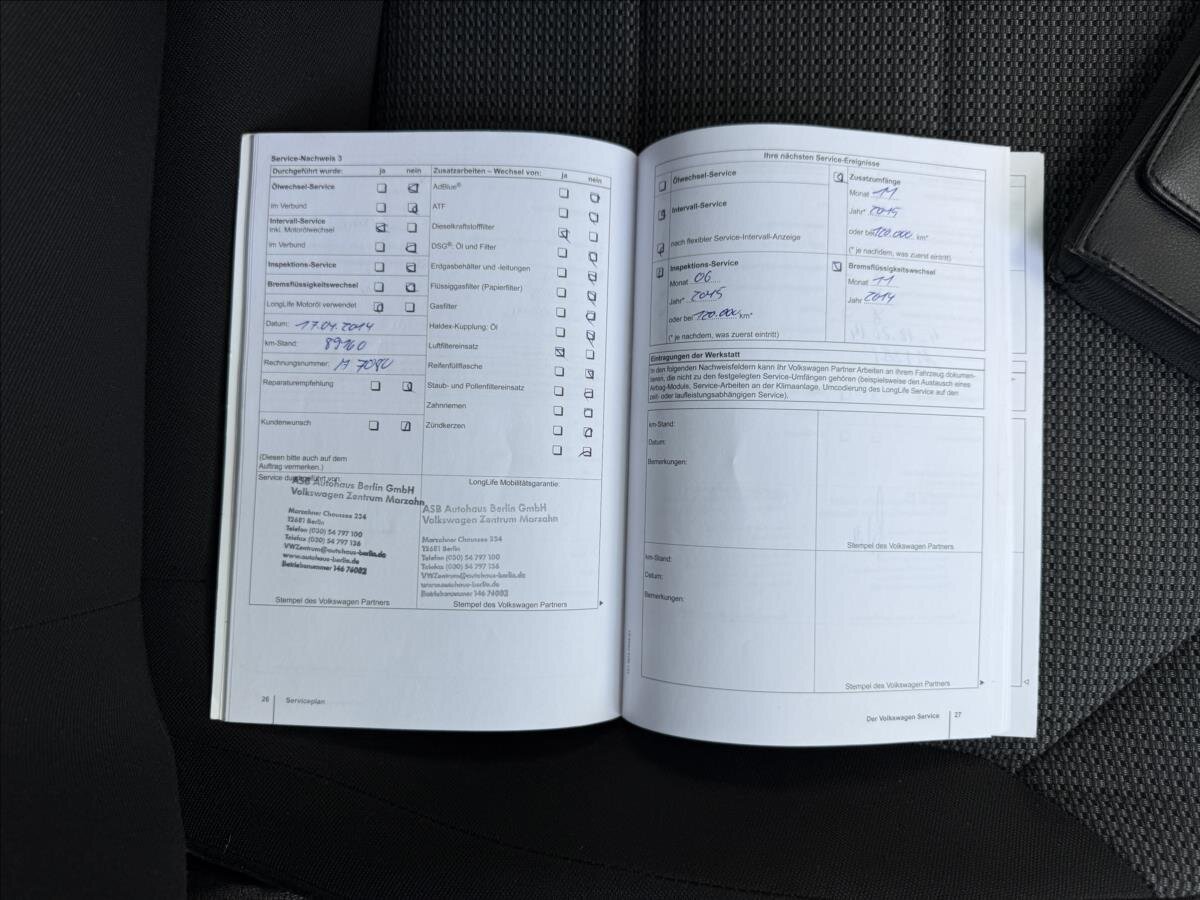 Service-Nachweis 3
Durchgeführt wurde: ja nein
Ölwechsel-Service
im Verbund
Intervall-Service
inkl. Motorölwechsel
im Verbund
Inspektions-Service
Bremsflüssigkeitswechsel
LongLife Motoröl verwendet
Datum: 17.04.2014
km-Stand: 89160
Rechnungsnummer: M 7080
Reparaturempfehlung
Kundenwunsch
(Diesen bitte auch auf dem
Auftrag vermerken.)
Zusatzarbeiten – Wechsel von: ja nein
AdBlue®
ATF
Dieselkraftstofffilter
DSG®: Öl und Filter
Erdgasbehälter und -leitungen
Flüssiggasfilter (Papierfilter)
Gasfilter
Haldex-Kupplung: Öl
Luftfiltereinsatz
Reifenfüllflasche
Staub- und Pollenfiltereinsatz
Zahnriemen
Zündkerzen
Service durchgeführt von:
ASB Autohaus Berlin GmbH
Volkswagen Zentrum Marzahn
Marzahner Chaussee 234
12681 Berlin
Telefon (030) 54 797 100
Telefax (030) 54 797 136
VWZentrum@autohaus-berlin.de
www.autohaus-berlin.de
Betriebsnummer 146 76082
Stempel des Volkswagen Partners
LongLife Mobilitätsgarantie:
ASB Autohaus Berlin GmbH
Volkswagen Zentrum Marzahn
Marzahner Chaussee 234
12681 Berlin
Telefon (030) 54 797 100
Telefax (030) 54 797 136
VWZentrum@autohaus-berlin.de
www.autohaus-berlin.de
Betriebsnummer 146 76082
Stempel des Volkswagen Partners
26 Serviceplan
Ihre nächsten Service-Ereignisse
Ölwechsel-Service
Intervall-Service
nach flexibler Service-Intervall-Anzeige
Zusatzumfänge
Monat 11
Jahr* 2015
oder bei 120.000 km*
(* je nachdem, was zuerst eintritt)
Inspektions-Service
Monat 06
Jahr* 2015
oder bei 120.000 km*
(* je nachdem, was zuerst eintritt)
Bremsflüssigkeitswechsel
Monat 11
Jahr 2014
Eintragungen der Werkstatt
In den folgenden Nachweisfeldern kann Ihr Volkswagen Partner Arbeiten an Ihrem Fahrzeug dokumen-
tieren, die nicht zu den festgelegten Service-Umfängen gehören (beispielsweise den Austausch eines
Airbag-Moduls, Service-Arbeiten an der Klimaanlage, Umcodierung des LongLife Service auf den
zeit- oder laufleistungsabhängigen Service).
km-Stand:
Datum:
Bemerkungen:
Stempel des Volkswagen Partners
km-Stand:
Datum:
Bemerkungen:
Stempel des Volkswagen Partners
Der Volkswagen Service 27